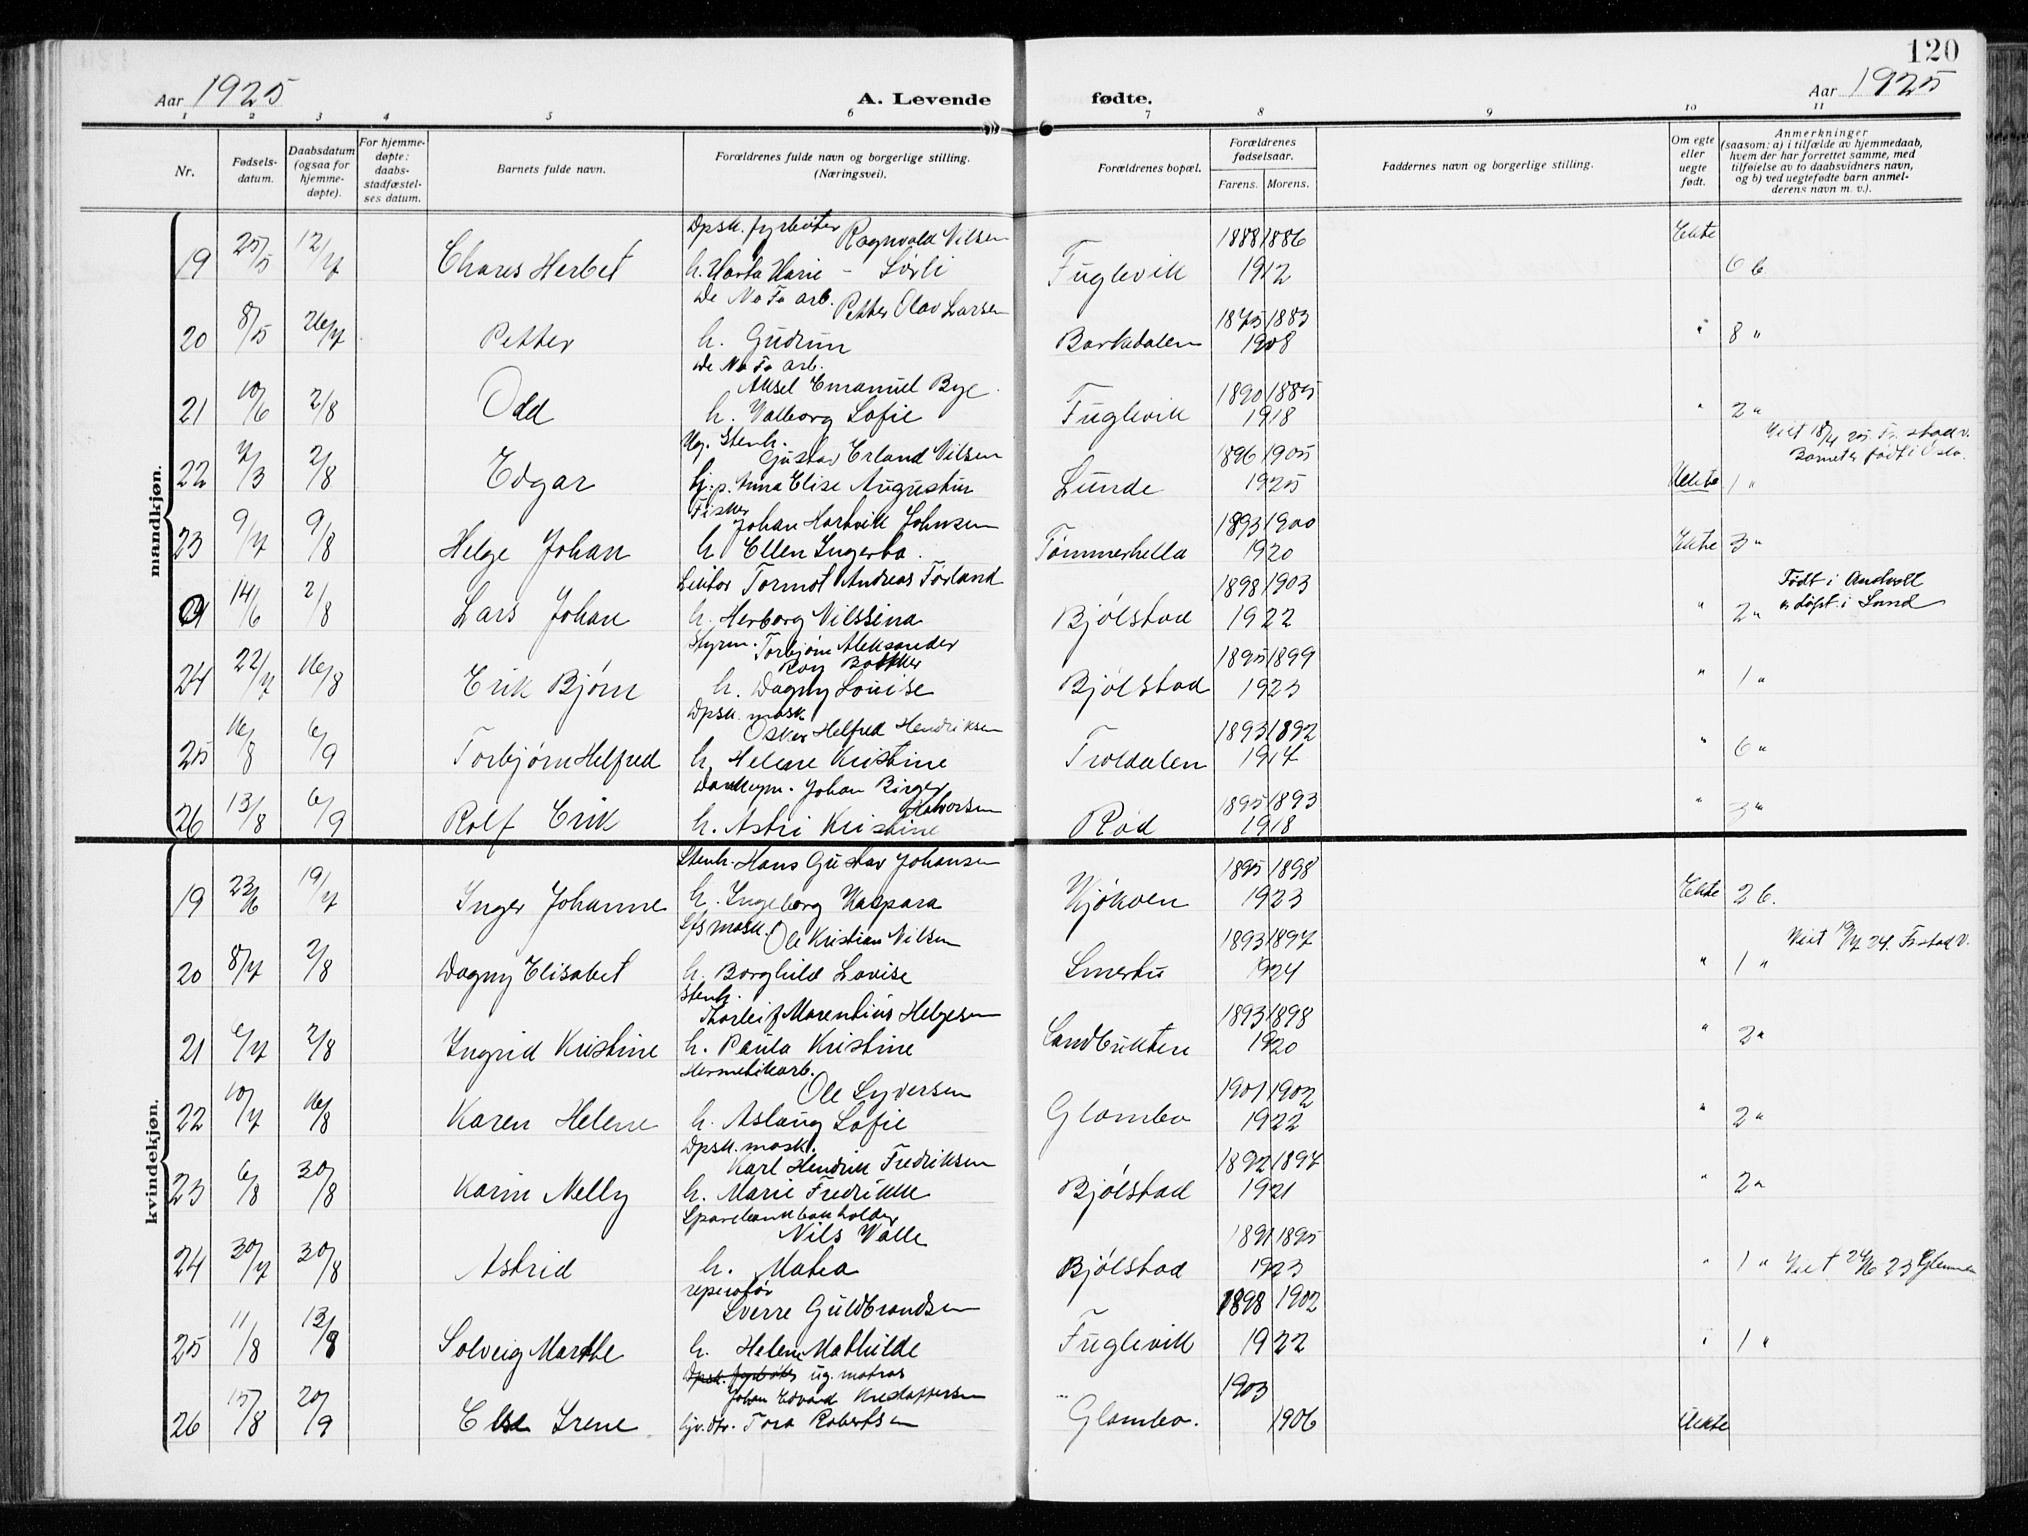 120
Aar 1925 A. Levende fødte. Aar 1925
1 2 3 4 5 6 7 8 9 10 11
Nr.
Fødsels-
datum.
Daabsdatum
(ogsaa for
hjemme-
døpte).
For hjemme-
døpte:
daabs-
stadfæstel-
ses datum.
Barnets fulde navn.
Forældrenes fulde navn og borgerlige stilling.
(Næringsvei).
Forældrenes bopæl.
Forældrenes
fødselsaar.
Farens. Morens.
Faddernes navn og borgerlige stilling.
Om egte
eller
uegte
født.
Anmerkninger
(saasom: a) i tilfælde av hjemmedaab,
hvem der har forrettet samme, med
tilføielse av to daabsvidners navn,
og b) ved uegtefødte barn anmel-
derens navn m. v.).
mandkjøn.
Dpsk. fyrbøter Ragnvald Nilsen 1888 1886 Ekte
19 25/5 12/7 Chares Herbet h. Marta Marie - Sørli Fuglevik 1912 6 b.
De No Fa arb. Petter Olav Larsen 1875 1883
20 8/5 26/7 Petter h. Gudrun Barkedalen 1908 " 8 "
De No Fa arb.
Aksel Emanuel Bye 1890 1885
21 10/6 2/8 Odd h. Valborg Sofie Fuglevik 1918 " 2 "
Ug. Stenh. Gustav Erland Nilsen 1896 1905 Viet 18/4 25. Fr.stad v.
Barnet er født i Oslo.
22 7/3 2/8 Edgar Gj. p. Anna Elise Augustin Lunde 1925 Uekte 1 "
Fisker Johan Hartvik Johnsen 1893 1900
23 9/7 9/8 Helge Johan h. Ellen Ingerba. Tømmerhella 1920 Ekte 3 "
Lektor Tormot Andreas Førland 1898 1903 Født i
14/6 2/8 Lars Johan h. Herborg Nilssina Bjølstad 1922 " 2 " døpt i Lund
Styrm. Torbjørn Aleksander
Roy Bakker 1895 1899
24 22/7 16/8 Erik Bjørn h. Dagny Louise Bjølstad 1923 " 1 "
Dpsk. mask. Oskar Helfred Hendriksen 1893 1892
25 16/8 6/9 Torbjørn Helfred h. Helene Kristine Troldalen 1917 " 6 "
Johan Birger Halvorsen 1895 1893
26 13/8 6/9 Rolf Erik h. Astri Kristine Rød 1918 " 3 "
kvindekjøn.
Stenh. Hans Gustav Johansen 1895 1898
19 23/6 19/7 Inger Johanne h. Ingeborg Kaspara Kjøkøen 1923 Ekte 2 b.
mask. Ole Kristian Nilsen 1893 1897 Viet 19/7 24. Fr.stad v.
20 8/7 2/8 Dagny Elisabet h. Borghild Lovise Smertu 1924 " 1 "
Stenh.
Thorleif Marentius Helgesen 1893 1898
21 6/7 2/8 Ingrid Kristine h. Paula Kristine Sandbukten 1920 " 2 "
Hermetikarb.
Ole Syversen 1901 1902
22 10/7 16/8 Karen Helene h. Aslaug Sofie Glombo 1922 " 2 "
Dpsk. mask.
Karl Hendrik Fredriksen 1892 1897
23 6/8 30/8 Karin Nelly h. Marie Fredrikke Bjølstad 1921 " 2 "
Sparebankbokholder
Nils Valle 1891 1895
24 30/7 30/8 Astrid h. Matea Bjølstad 1923 " 1 " Viet 24/6 23 Glemmen
reperatør
Sverre Guldbrandsen 1898 1902
25 11/8 13/9 Solveig Marthe h. Helene Mathilde Fuglevik 1922 " 1 "
Dpsk. fyrbøter ug. matros
Johan Edvard Kristoffersen 1903
26 15/8 20/9 Else Irene gv. dtr. Tora Robertsen Glombo. 1906 Uekte